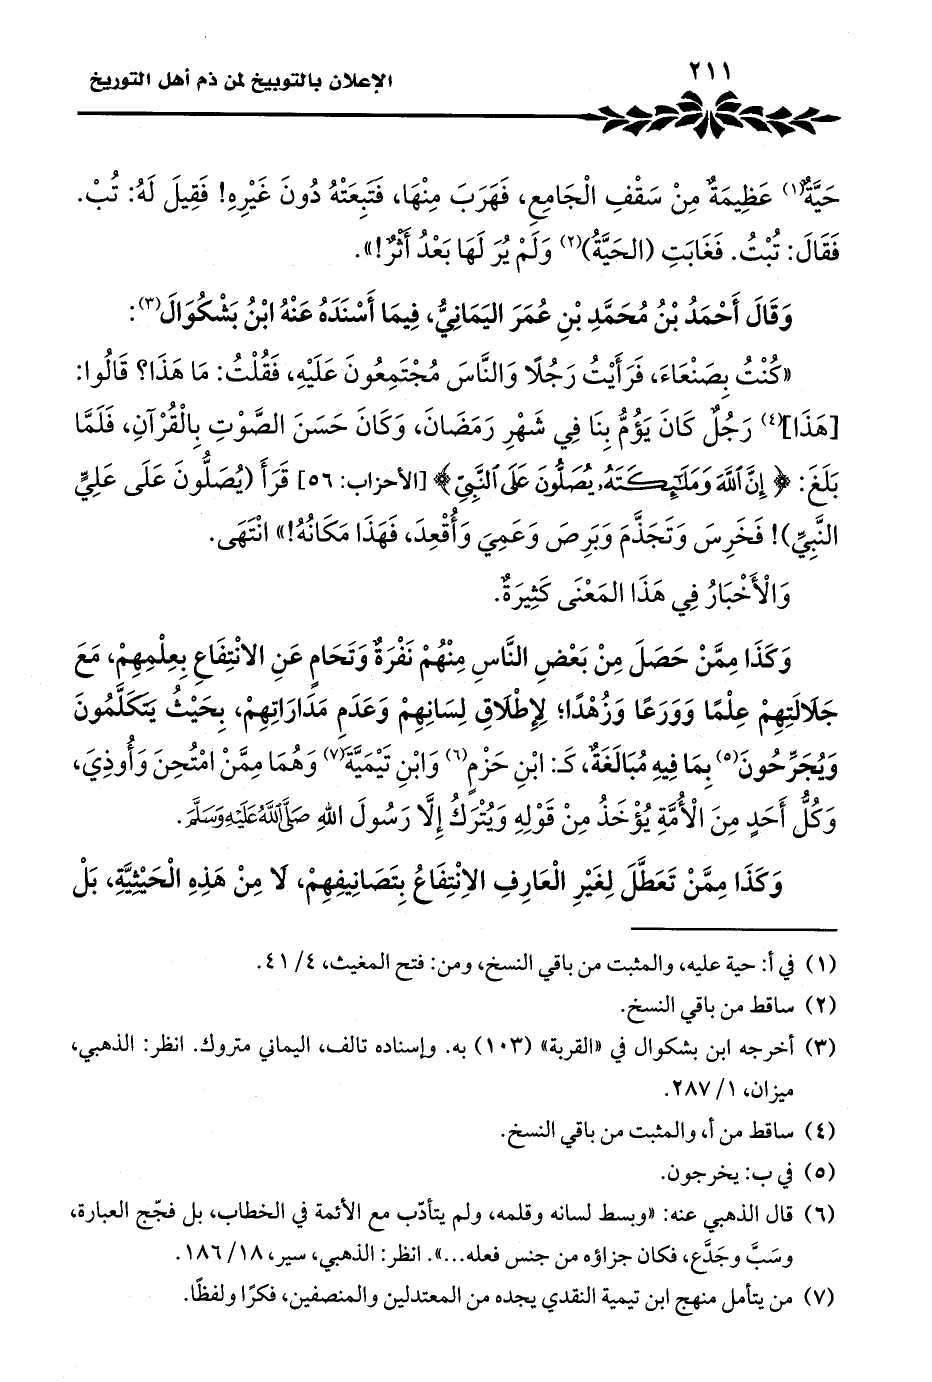 ٢١١
الإعلان بالتوبيخ لمن ذم أهل التوريخ
حَيَّةٌ(١) عَظِيمَةٌ مِنْ سَقْفِ الْجَامِعِ، فَهَرَبَ مِنْهَا، فَتَبِعَتْهُ دُونَ غَيْرِهِ! فَقِيلَ لَهُ: تُبْ.
فَقَالَ: تُبْتُ. فَغَابَتِ (الحَيَّةُ)(٢) وَلَمْ يُرَ لَهَا بَعْدُ أَثَرٌ!».
وَقَالَ أَحْمَدُ بْنُ مُحَمَّدِ بْنِ عُمَرَ اليَمَانِيُّ، فِيمَا أَسْنَدَهُ عَنْهُ ابْنُ بَشْكُوَالَ(٣):
«كُنْتُ بِصَنْعَاءَ، فَرَأَيْتُ رَجُلًا وَالنَّاسَ مُجْتَمِعُونَ عَلَيْهِ، فَقُلْتُ: مَا هَذَا؟ قَالُوا:
[هَذَا](٤) رَجُلٌ كَانَ يَؤُمُّ بِنَا فِي شَهْرِ رَمَضَانَ، وَكَانَ حَسَنَ الصَّوْتِ بِالْقُرْآنِ، فَلَمَّا
بَلَغَ: ﴿ إِنَّ ٱللَّهَ وَمَلَٰٓئِكَتَهُۥ يُصَلُّونَ عَلَى ٱلنَّبِيِّ ﴾ [الأحزاب: ٥٦] قَرَأَ (يُصَلُّونَ عَلَى عَلِيٍّ
النَّبِيِّ)! فَخَرِسَ وَتَجَذَّمَ وَبَرِصَ وَعَمِيَ وَأُقْعِدَ، فَهَذَا مَكَانُهُ!» انْتَهَى.
وَالْأَخْبَارُ فِي هَذَا المَعْنَى كَثِيرَةٌ.
وَكَذَا مِمَّنْ حَصَلَ مِنْ بَعْضِ النَّاسِ مِنْهُمْ نَفْرَةٌ وَتَحَامٍ عَنِ الانْتِفَاعِ بِعِلْمِهِمْ، مَعَ
جَلَالَتِهِمْ عِلْمًا وَوَرَعًا وَزُهْدًا؛ لِإِطْلَاقِ لِسَانِهِمْ وَعَدَمِ مَدَارَاتِهِمْ، بِحَيْثُ يَتَكَلَّمُونَ
وَيُجَرِّحُونَ(٥) بِمَا فِيهِ مُبَالَغَةٌ، كَـ: ابْنِ حَزْمٍ(٦) وَابْنِ تَيْمِيَّةَ(٧) وَهُمَا مِمَّنْ امْتُحِنَ وَأُوذِيَ،
وَكُلُّ أَحَدٍ مِنَ الْأُمَّةِ يُؤْخَذُ مِنْ قَوْلِهِ وَيُتْرَكُ إِلَّا رَسُولَ اللهِ صَلَّى اللَّهُ عَلَيْهِ وَسَلَّمَ.
وَكَذَا مِمَّنْ تَعَطَّلَ لِغَيْرِ الْعَارِفِ الِانْتِفَاعُ بِتَصَانِيفِهِمْ، لَا مِنْ هَذِهِ الْحَيْثِيَّةِ، بَلْ
(١) في أ: حية عليه، والمثبت من باقي النسخ، ومن: فتح المغيث، ٤/ ٤١.
(٢) ساقط من باقي النسخ.
(٣) أخرجه ابن بشكوال في «القربة» (١٠٣) به. وإسناده تالف، اليماني متروك. انظر: الذهبي،
ميزان، ١/ ٢٨٧.
(٤) ساقط من أ، والمثبت من باقي النسخ.
(٥) في ب: يخرجون.
(٦) قال الذهبي عنه: «وبسط لسانه وقلمه، ولم يتأدّب مع الأئمة في الخطاب، بل فجّج العبارة،
وسَبَّ وجَدَّع، فكان جزاؤه من جنس فعله...». انظر: الذهبي، سير، ١٨/ ١٨٦.
(٧) من يتأمل منهج ابن تيمية النقدي يجده من المعتدلين والمنصفين، فكرًا ولفظًا.